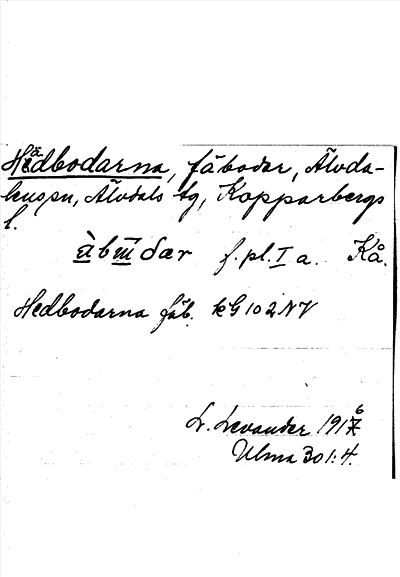 Hedbodarna, fäbodar, Älvda-
lens sn, Älvdals tg, Kopparbergs
l.
àbɯdar f. pl. I a. Kå.
Hedbodarna fäb. kG 102NV
L. Levander 1916
Ulma 301:4.